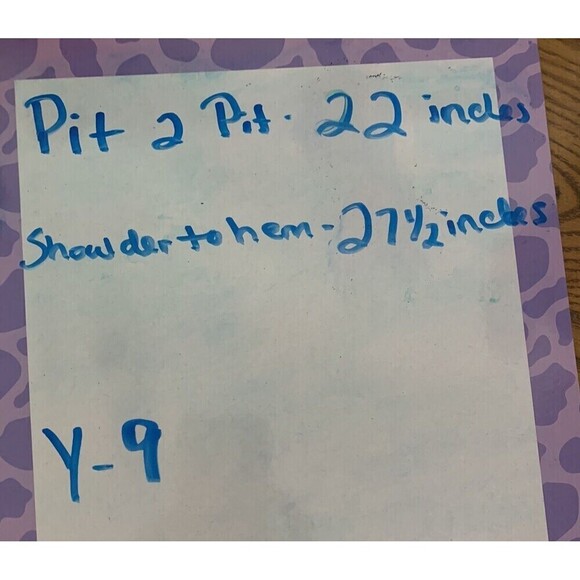 Pit 2 Pit. 22 inches
Showlder to hem - 27 1/2 inches
Y-9